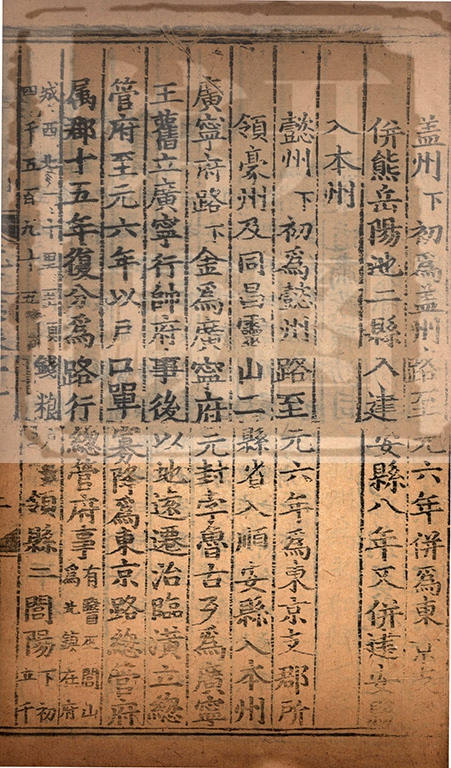 盖州下初爲盖州路至元六年併爲東京支
併熊岳陽池二縣入建安縣八年又併建安縣
入本州
懿州下初爲懿州路至元六年爲東京支郡所
領豪州及同昌靈山二縣省入順安縣入本州
廣寧府路下金爲廣寧府元封孛魯古歹爲廣寧
王舊立廣寧行帥府事後以地遠遷治臨潢立總
管府至元六年以戶口單寡降爲東京路總管府
属郡十五年復分爲路行總管府事有醫巫閭山爲北鎮在府
城西北一十里至順錢粮四千五百九十五領縣二閭陽下初立千